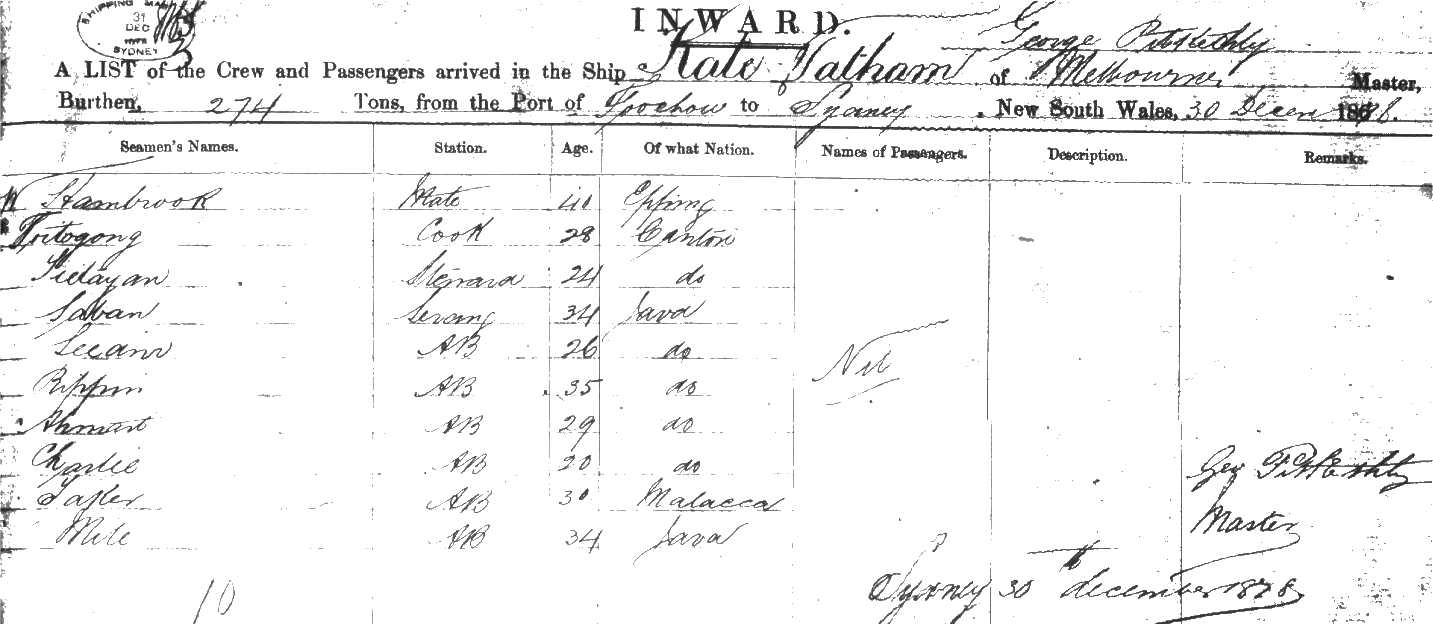 SHIPPING MA
31
DEC
SYDNEY
INWARD.
George Pitkethly
A LIST of the Crew and Passengers arrived in the Ship Kate Tatham of Melbourne, Master,
Burthen, 274 Tons, from the Port of Foochow to Sydney, New South Wales, 30 Decem 1878.
Seamen's Names. Station. Age. Of what Nation. Names of Passengers. Description. Remarks.
W Stambrook Mate 40 Epping
Cook 28 Canton
Steward 24 do
Saban Serang 34 Java
AB 26 do
Nil
Rippin AB 35 do
Ahmat AB 29 do
Charlie AB 20 do
Geo Pitkethly
AB 30 Malacca
Master
AB 34 Java
Sydney 30th december 1878
10